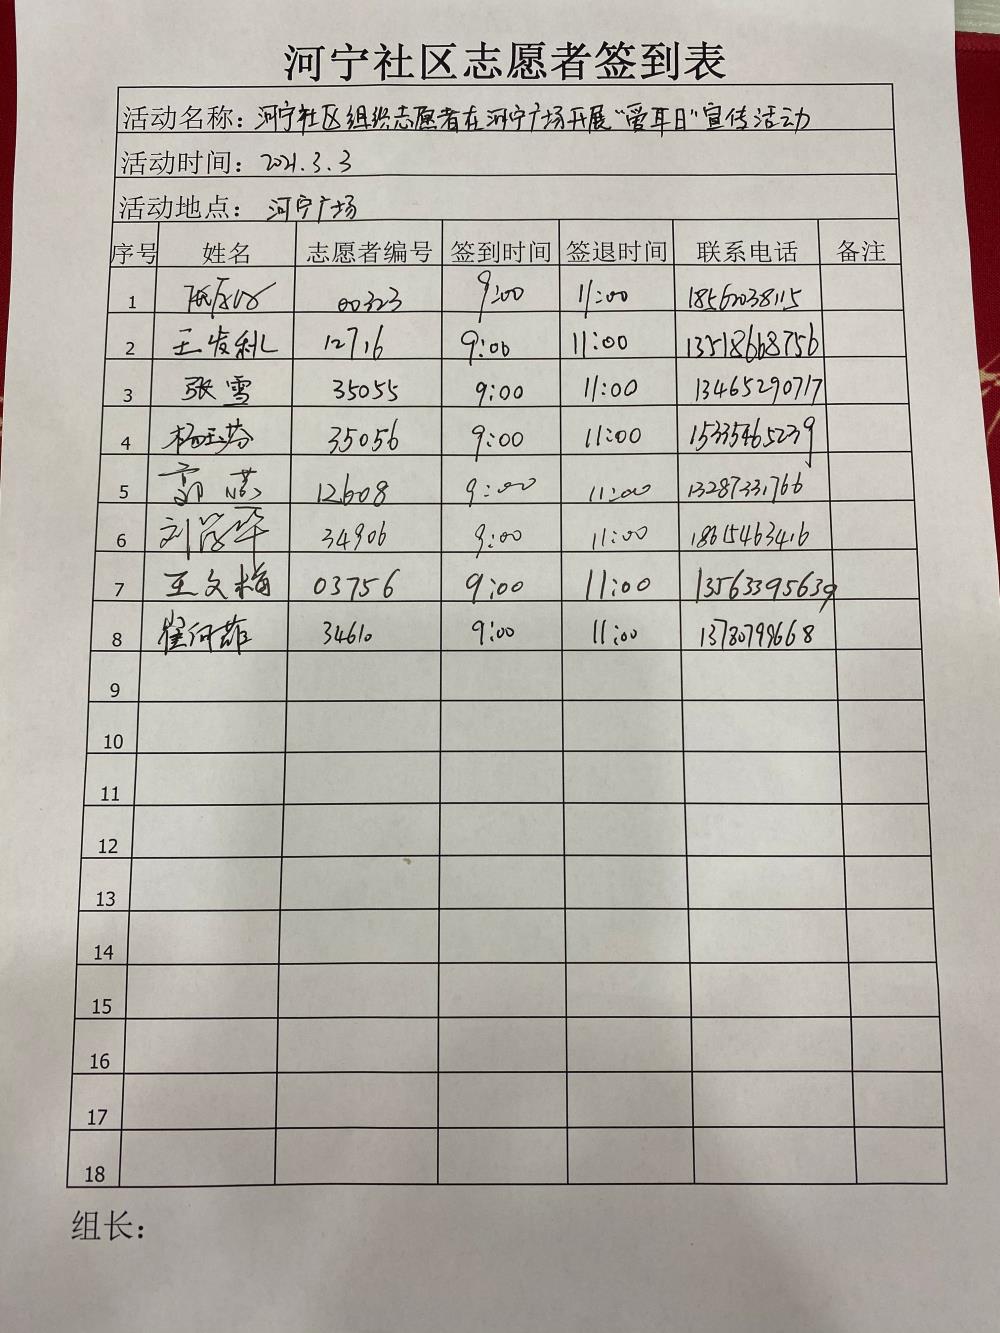 河宁社区志愿者签到表
活动名称：河宁社区组织志愿者在河宁广场开展“爱耳日”宣传活动
活动时间：2021.3.3
活动地点：河宁广场
序号 姓名 志愿者编号 签到时间 签退时间 联系电话 备注
1 00323 9:00 11:00 18562038115
2 王发利 12716 9:00 11:00 13518668756
3 张雪 35055 9:00 11:00 13465290717
4 杨玉芬 35056 9:00 11:00 15335465239
5 12608 9:00 11:00 13287331766
6 34906 9:00 11:00 18615463416
7 王文梅 03756 9:00 11:00 13563395639
8 34610 9:00 11:00 13780799668
9
10
11
12
13
14
15
16
17
18
组长：